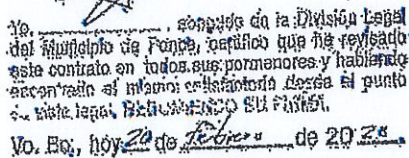 Yo, ________, abogado de la División Legal
del Municipio de Ponce, certifico que he revisado
este contrato en todos sus pormenores y habiendo
encontrado el mismo satisfactorio desde el punto
de vista legal, RECOMIENDO SU FIRMA.
Vo. Bo., hoy 20 de febrero de 20